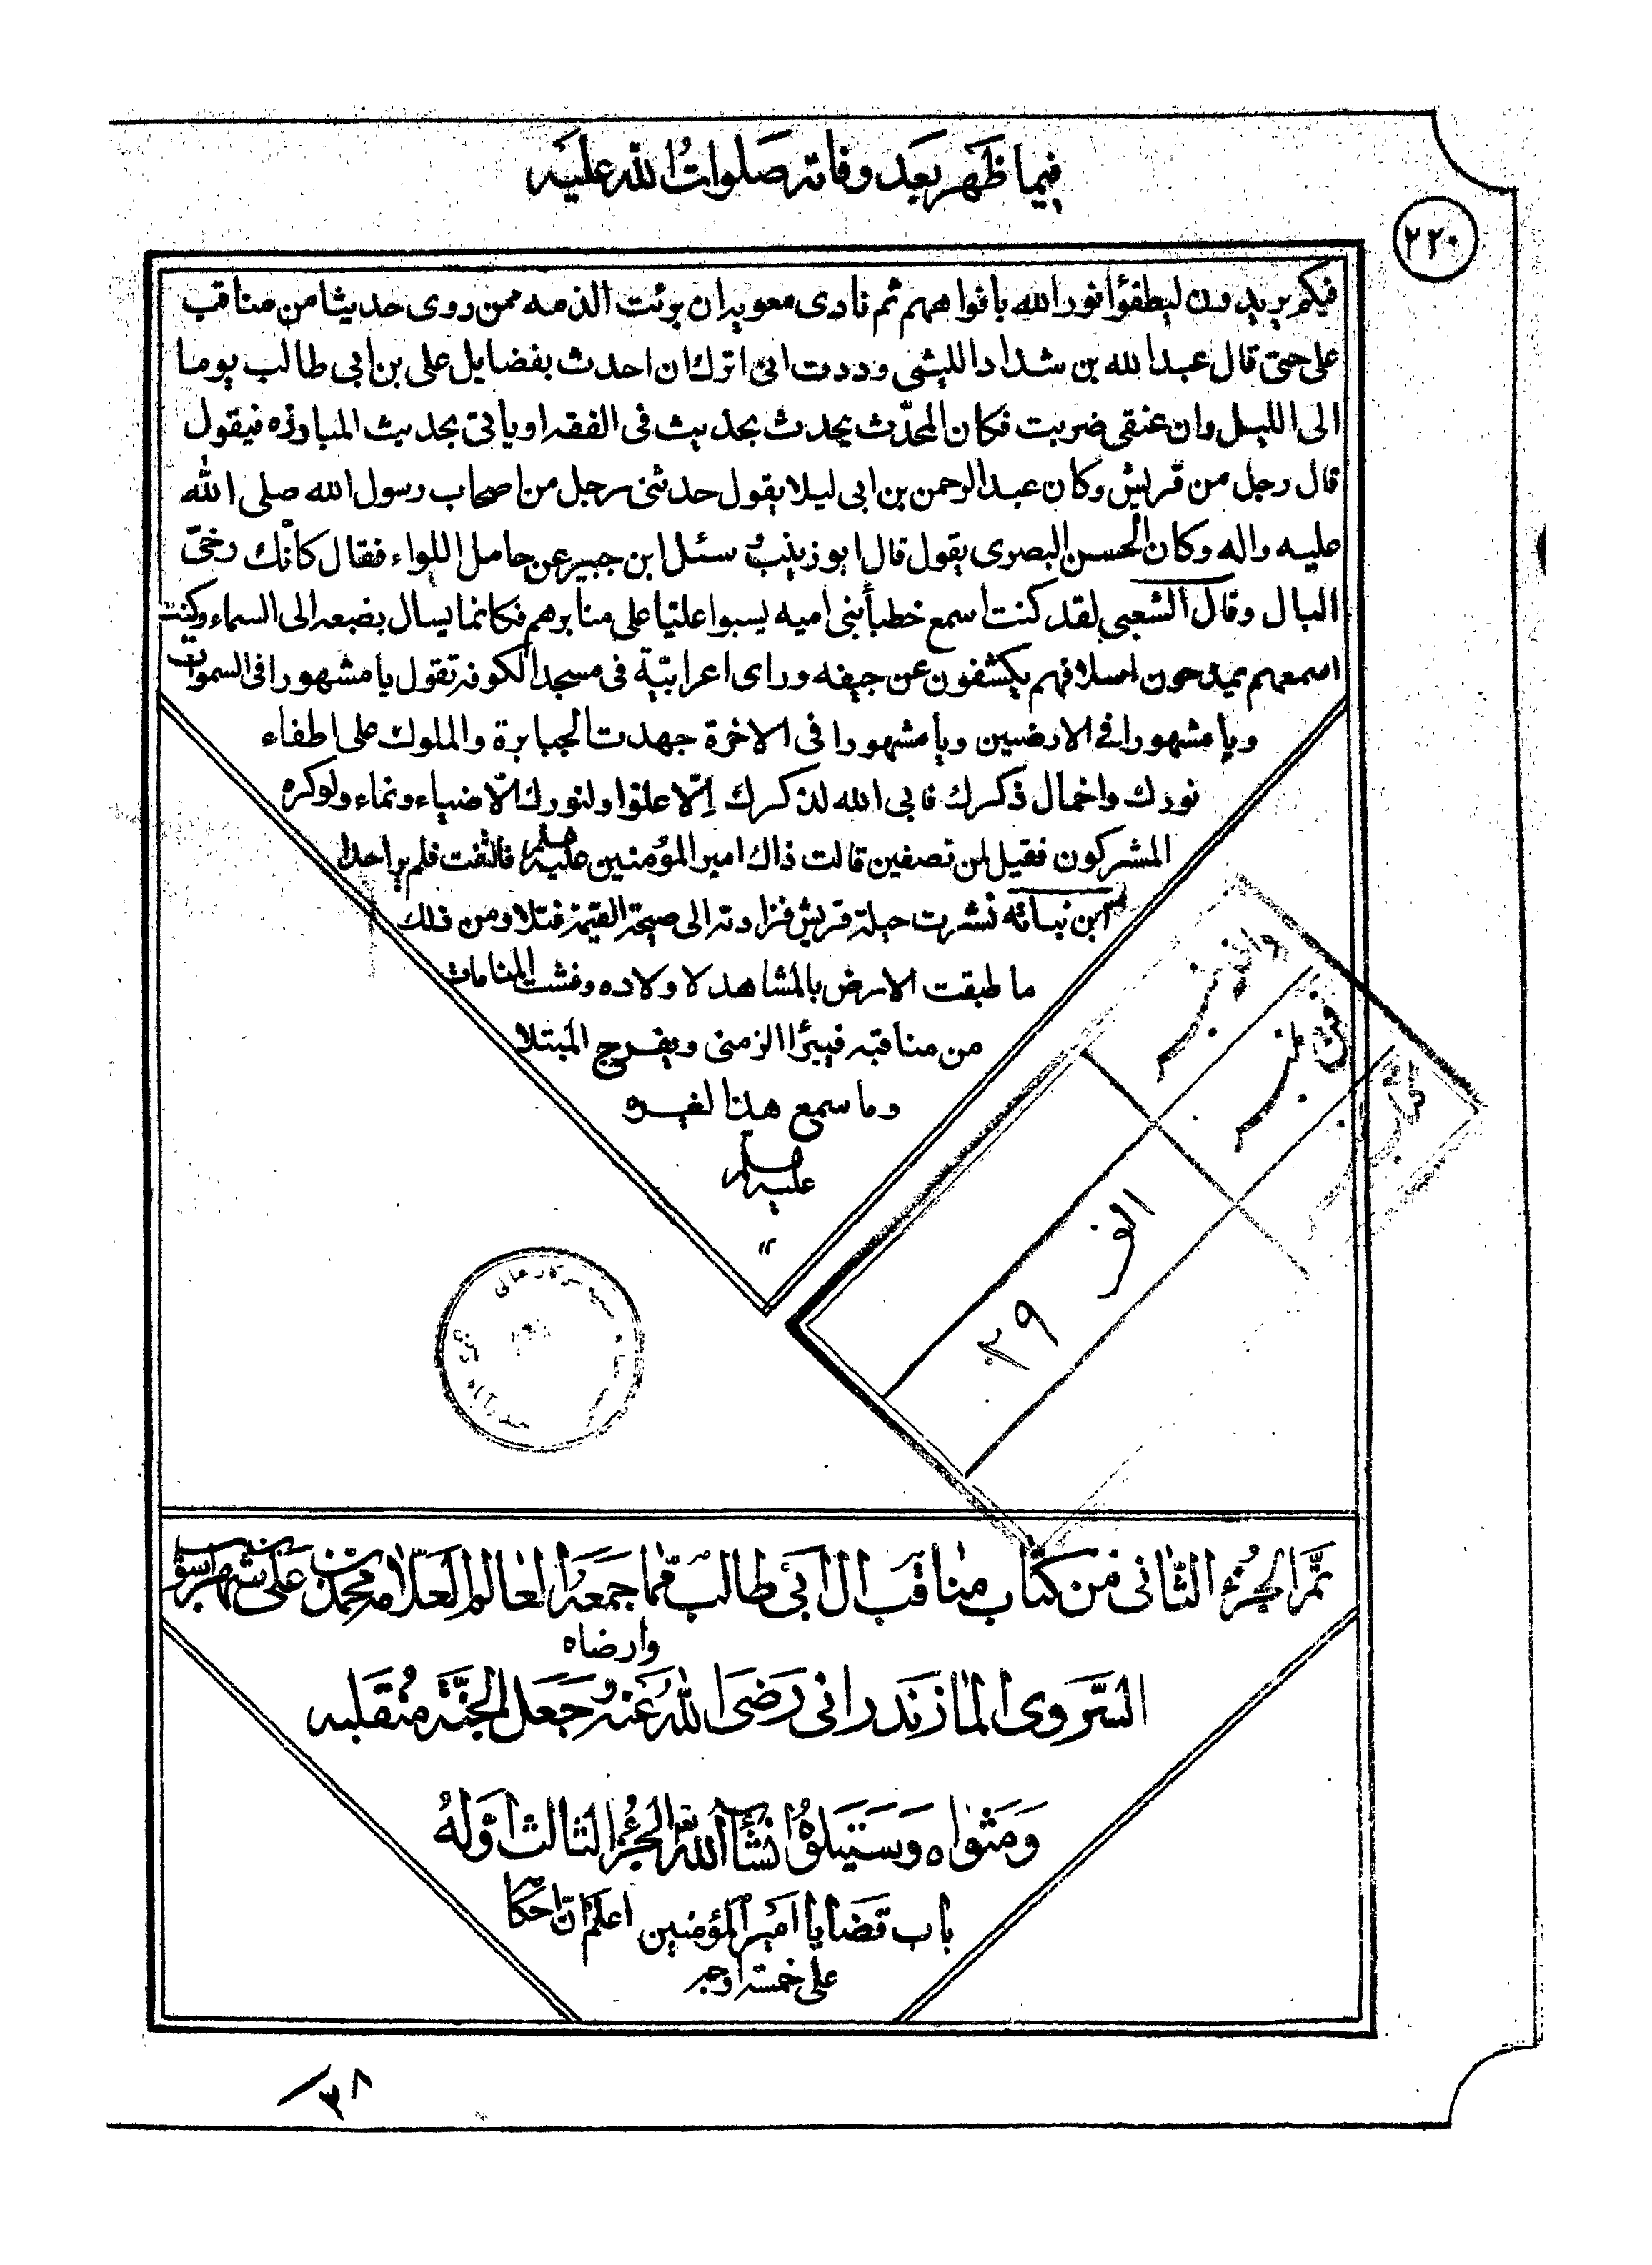 فيما ظهر بعد وفاته صلوات الله عليه
٢٢٠
فيكم يريدون ليطفؤا نور الله بافواههم ثم نادى معويه ان برئت الذمه ممن روى حديثا من مناقب
على حتى قال عبد الله بن شداد الليثى وددت انى اترك ان احدث بفضايل على بن ابى طالب يوما
الى الليل وان عنقى ضربت فكان المحدّث يحدث بحديث فى الفقه او ياتى بحديث المبارزه فيقول
قال رجل من قريش وكان عبد الرحمن بن ابى ليلا يقول حدثنى رجل من اصحاب رسول الله صلى الله
عليه واله وكان الحسن البصرى يقول قال ابو زينب وسئل ابن جبير عن حامل اللواء فقال كانّك رخىّ
البال وقال الشعبى لقد كنت اسمع خطبأ بنى اميه يسبوا عليّا على منابرهم فكانما يسال بضبعه الى السماء وكنت
اسمعهم يمدحون اسلافهم يكشفون عن جيفه وراى اعرابيّة فى مسجد الكوفه تقول يا مشهورا فى السموات
ويا مشهورا فى الارضين ويا مشهورا فى الاخرة جهدت الجبابرة والملوك على اطفاء
نورك واخمال ذكرك فابى الله لذكرك الّا علوا ولنورك الّا ضياء ونماء ولو كره
المشركون فقيل لمن تصفين قالت ذاك امير المؤمنين عليه السلم فالتفت فلم ير احدا
ابن نباته نشرت حيلة قريش فزادته الى صيحة القيمة فتلا ومن ذلك
ما طبقت الارض بالمشاهد لاولاده وفشت المنامات
من مناقبه فيبرأ الزمنى ويفرج المبتلا
وما سمع هذا لغيره
عليه السلم
١٢
الف
٢٩
تمّ الجزء الثّانى من كتاب مناقب ال ابى طالب ممّا جمعه العالم العلّامه محمّد بن على بن شهر اسوب
وارضاه
السّروى المازندرانى رضى الله عنه وجعل الجنّة منقلبه
ومثواه وستيلوه انشأ الله تعالى الجزء الثالث اوّله
باب قضايا امير المؤمنين اعلم انّ احكام
على خمسة اوجه
٣٨